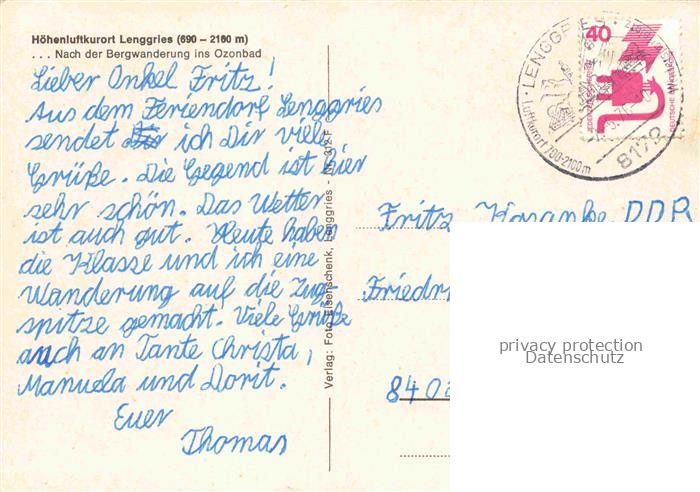 Höhenluftkurort Lenggries (690 – 2160 m)
. . . Nach der Bergwanderung ins Ozonbad
Lieber Onkel Fritz!
Aus dem Feriendorf Lenggries
sendet ich Dir viele
Grüße. Die Gegend ist hier
sehr schön. Das Wetter
ist auch gut. Heute haben
die Klasse und ich eine
Wanderung auf die Zug-
spitze gemacht. Viele Grüße
auch an Tante Christa,
Manuela und Dorit.
Euer
Thomas
Verlag: Foto Eisenschenk, Lenggries - Nr. 312 F
LENGGRIES
Luftkurort 700-2100m
8172
40
DEUTSCHE BUNDESPOST
Fritz DDR
Friedr
8402
privacy protection
Datenschutz